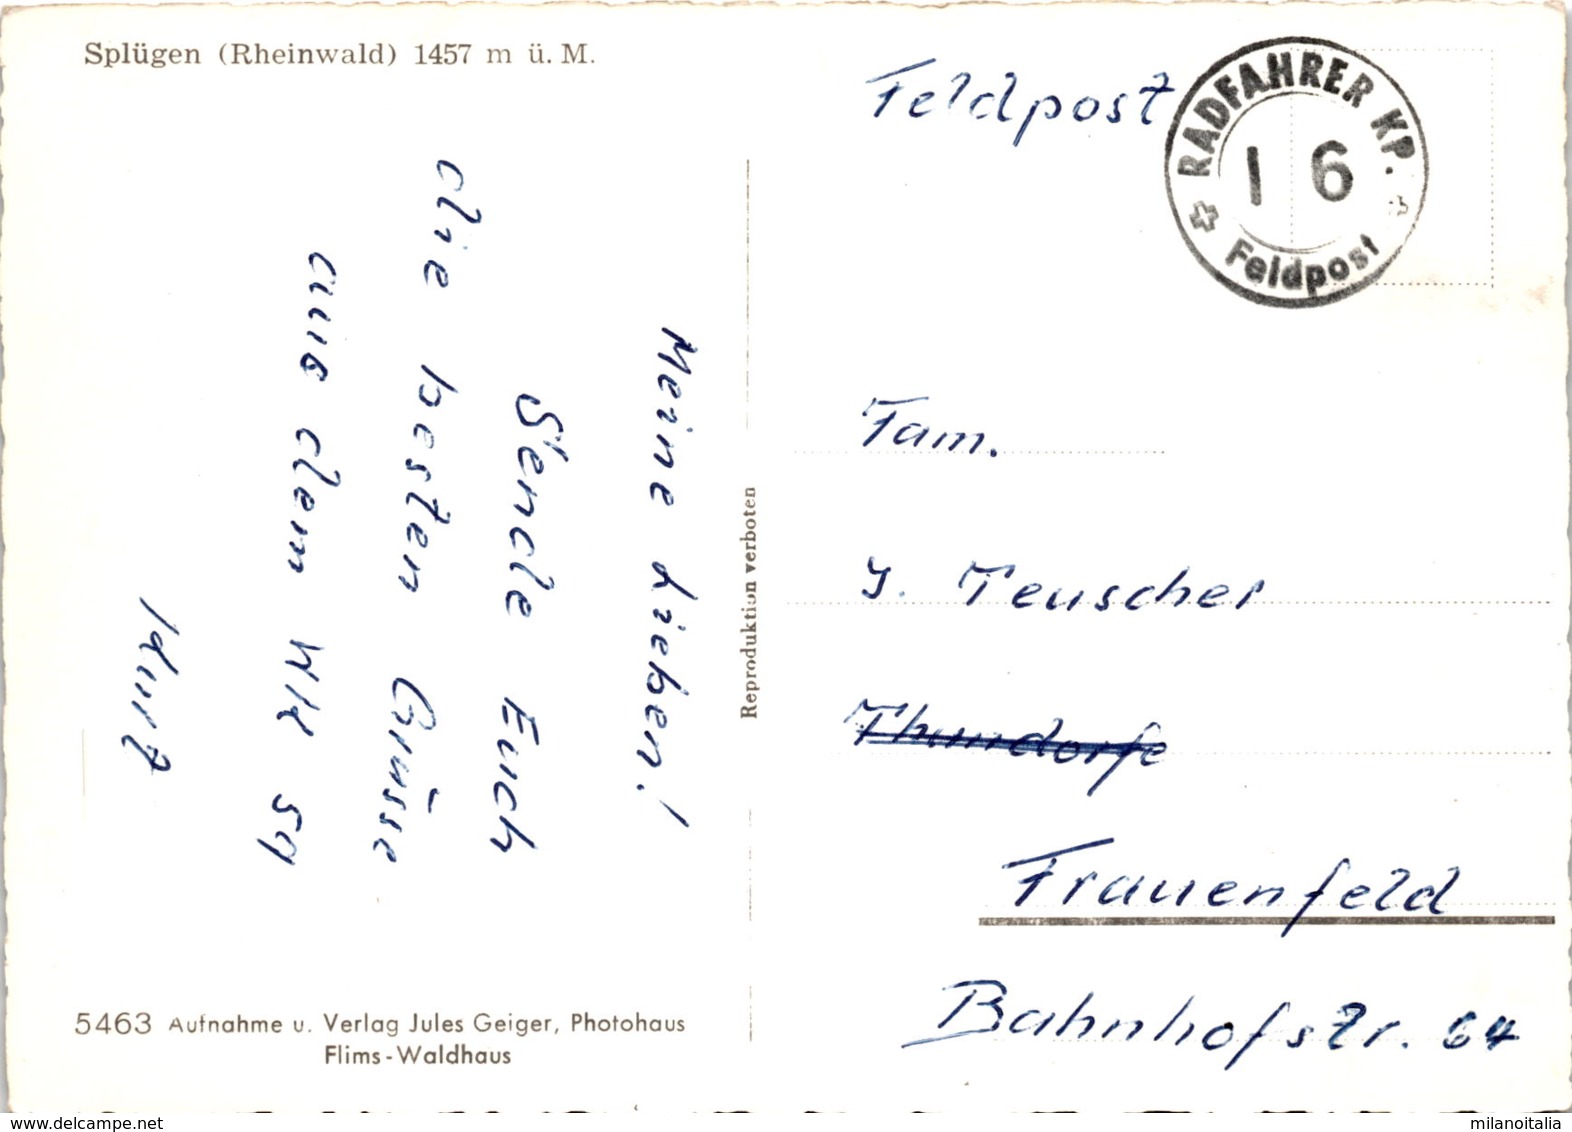 Splügen (Rheinwald) 1457 m ü. M.
Meine Lieben!
Sende Euch
die besten Grüsse
aus dem WK 59
Kurz
5463 Aufnahme u. Verlag Jules Geiger, Photohaus
Flims-Waldhaus
Reproduktion verboten
Feldpost
RADFAHRER KP.
I 6
Feldpost
Fam.
J. Teuscher
Thundorfe
Frauenfeld
Bahnhofstr. 64
www.delcampe.net
milanoitalia